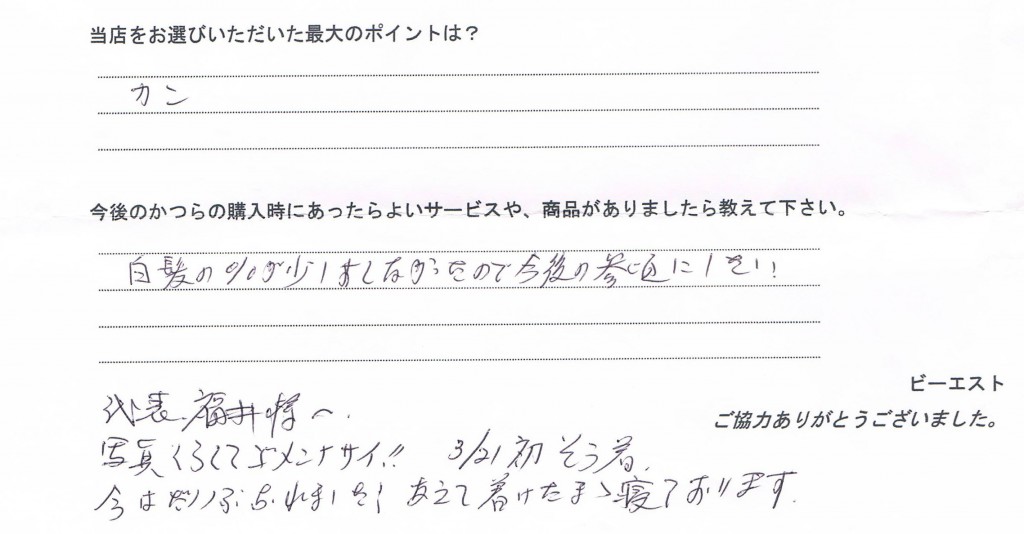 当店をお選びいただいた最大のポイントは？
カン
今後のかつらの購入時にあったらよいサービスや、商品がありましたら教えて下さい。
白髪の%が少しなかったので今後の参考にしたい！
ビーエスト
ご協力ありがとうございました。
代表、福井様へ.
写真くらくてゴメンナサイ!! 3/21初そう着.
今はだいぶなれました！あえて着けたまゝ寝ております.